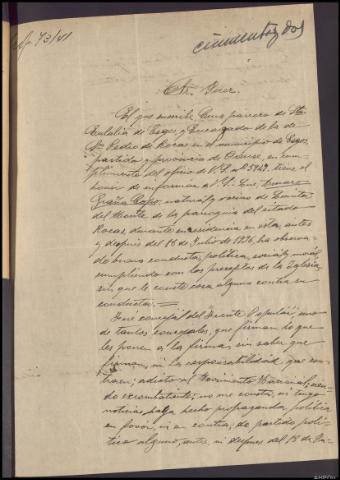 73/41
cincuenta y dos
Sr. Juez.
El que suscribe Cura párroco de Sta.
Eulalia de Esgos y Encargado de la de
S. Pedro de Rocas en el municipio de Esgos,
partido y provincia de Orense, en cum-
plimiento del oficio de V.S. nº 5929, tiene el
honor de informar a V.S. que,
natural y vecino de
del Monte de la parroquia del citado
Rocas, durante su residencia en esta, antes
y después del 18 de Julio de 1936, ha observa-
do buena conducta, política, social y moral,
cumpliendo con los preceptos de la Iglesia,
sin que le conste cosa alguna contra su
conducta.
Fué concejal del Frente Popular, uno
de tantos concejales, que firman lo que
les ponen a la firma, sin saber que
firman, ni la responsabilidad que con-
traen; adicto al Movimiento Nacional, sien-
do excombatiente; no me consta, ni tengo
noticias, haya hecho propaganda política
en favor, ni en contra, de partido polí-
tico alguno, antes ni después del 18 de Ju-